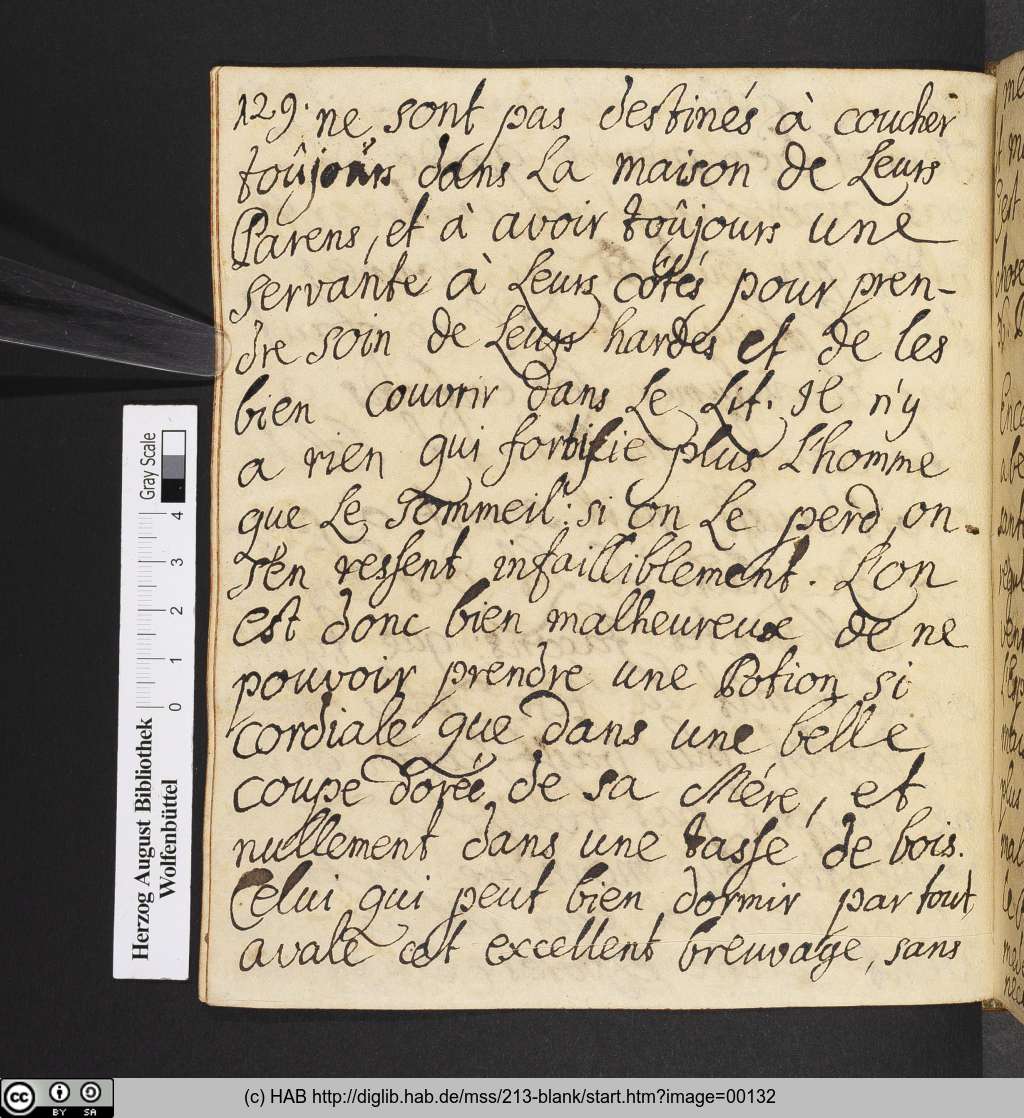 129. ne sont pas destinés à coucher
toûjours dans la maison de Leurs
Parens, et à avoir toûjours une
servante à Leurs côtés pour pren-
dre soin de Leurs hardes et de les
bien couvrir dans Le Lit. Il n'y
a rien qui fortifie plus L'homme
que Le sommeil: si on Le perd, on
s'en ressent infailliblement. L'on
est donc bien malheureux de ne
pouvoir prendre une Potion si
cordiale que dans une belle
coupe dorée de sa Mére, et
nullement dans une tasse de bois.
Celui qui peut bien dormir par tout
avale cet excellent breuvage, sans
Herzog August Bibliothek
Wolfenbüttel
0 1 2 3 4
Gray Scale
cc BY SA
(c) HAB http://diglib.hab.de/mss/213-blank/start.htm?image=00132